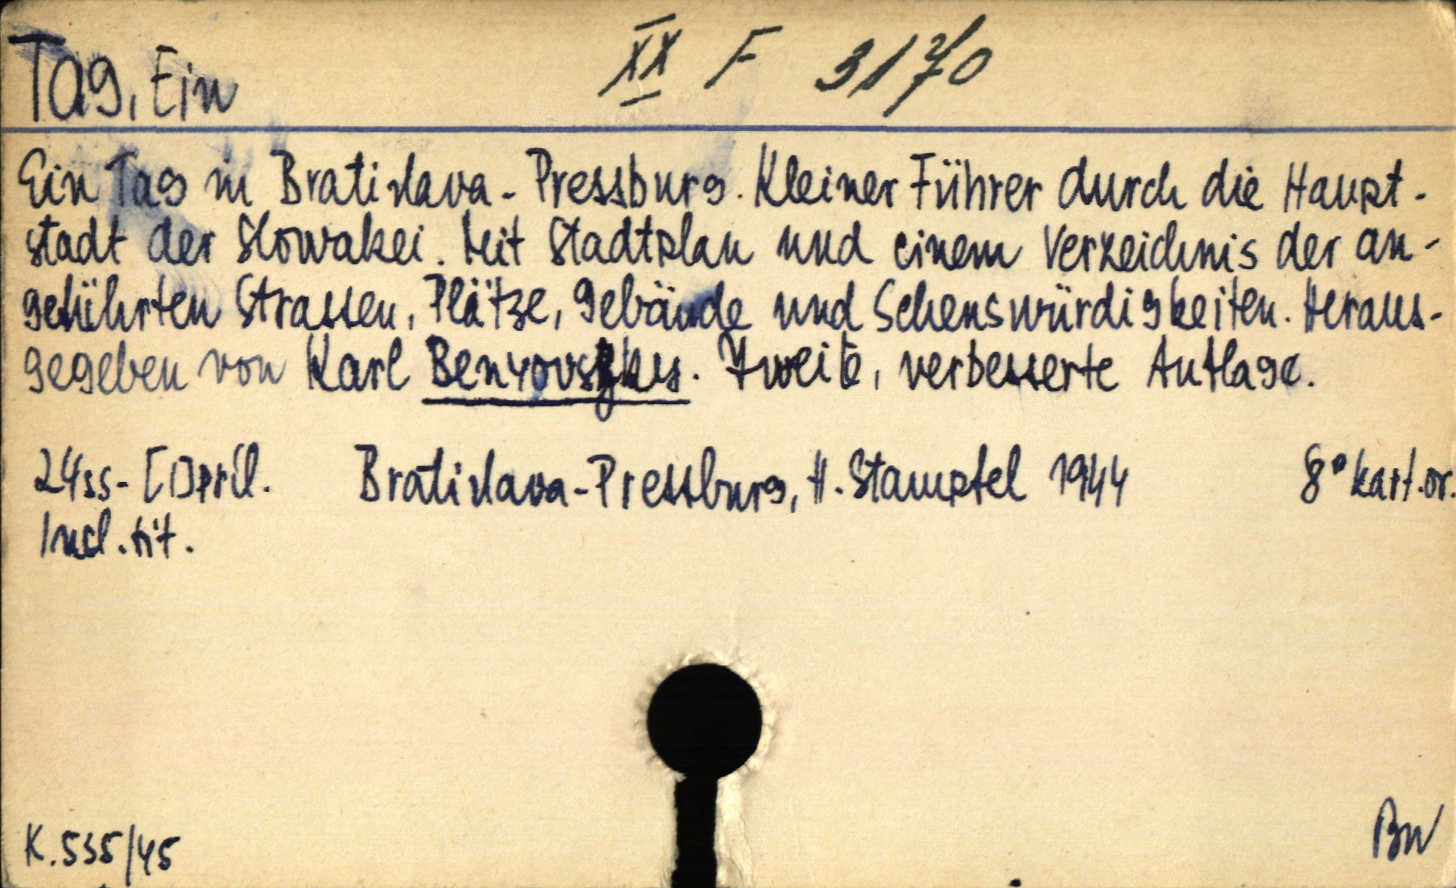 Tag, Ein
XX F 3170
Ein Tag in Bratislava-Pressburg. Kleiner Führer durch die Haupt-
stadt der Slowakei. Mit Stadtplan und einem Verzeichnis der an-
geführten Strassen, Plätze, Gebäude und Sehenswürdigkeiten. Heraus-
gegeben von Karl Benyovszky. Zweite, verbesserte Auflage.
24ss-[1]pril. Bratislava-Pressburg, H. Stampfel 1944 8° kart.or.
Incl. tit.
K.535/45
BW